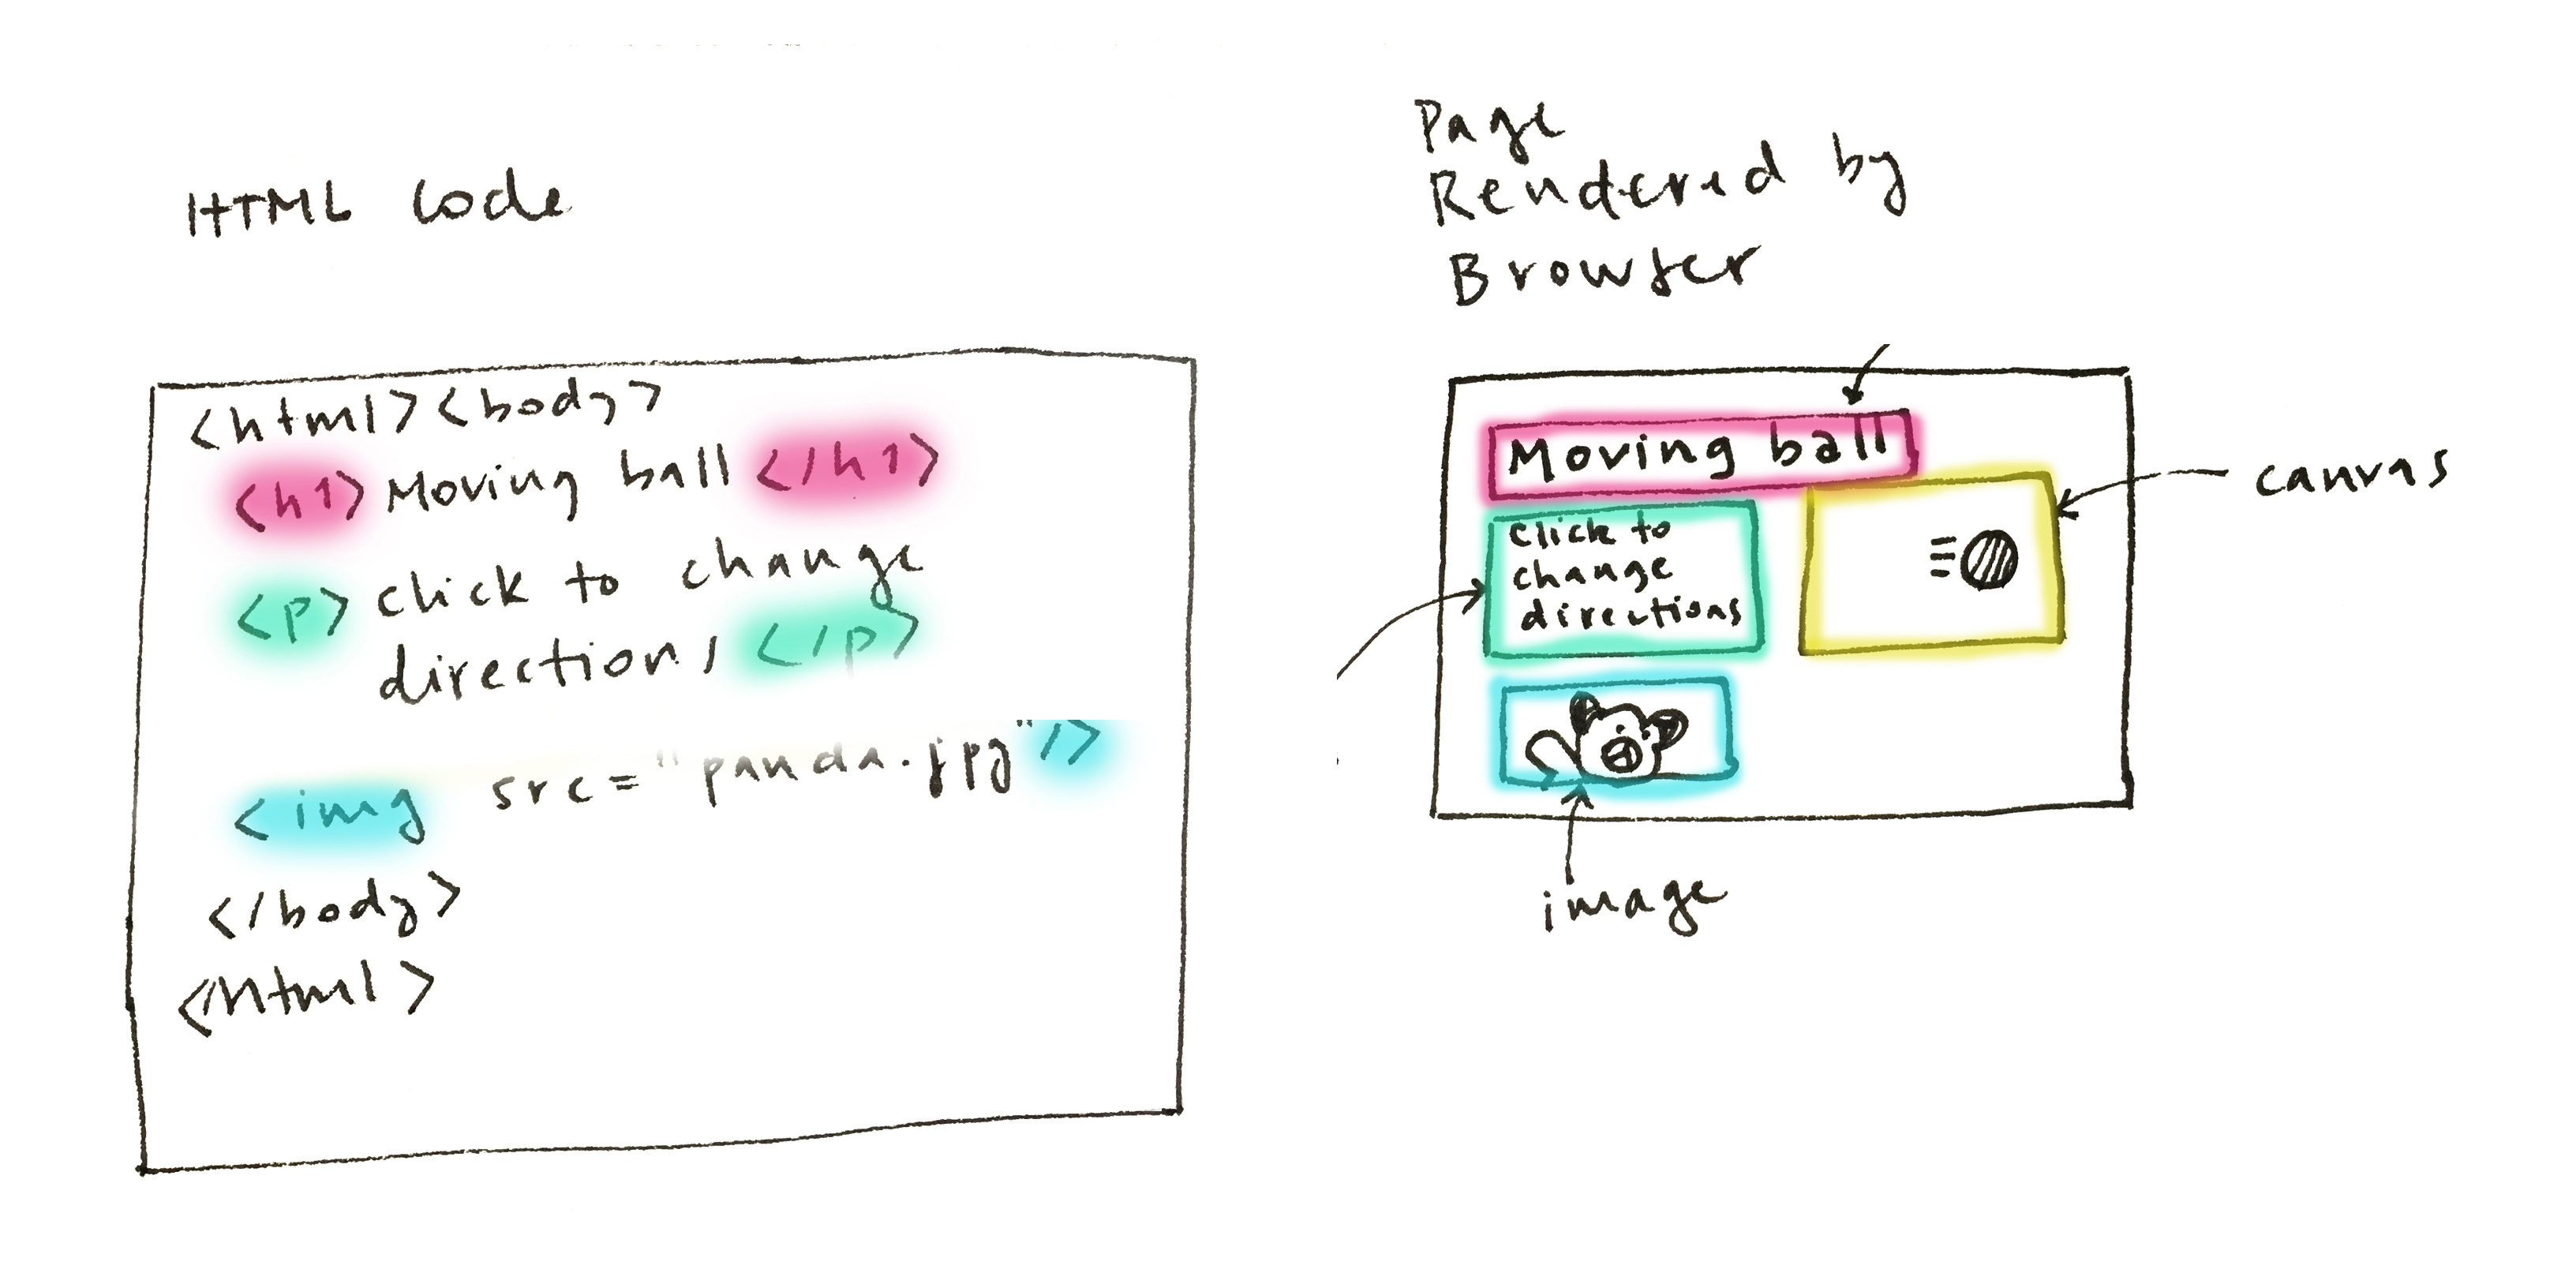 HTML Code
<html><body>
<h1>Moving ball</h1>
<p>click to change
directions</p>
<img src="panda.jpg"/>
</body>
</html>
Page
Rendered by
Browser
Moving ball
click to
change
directions
canvas
image